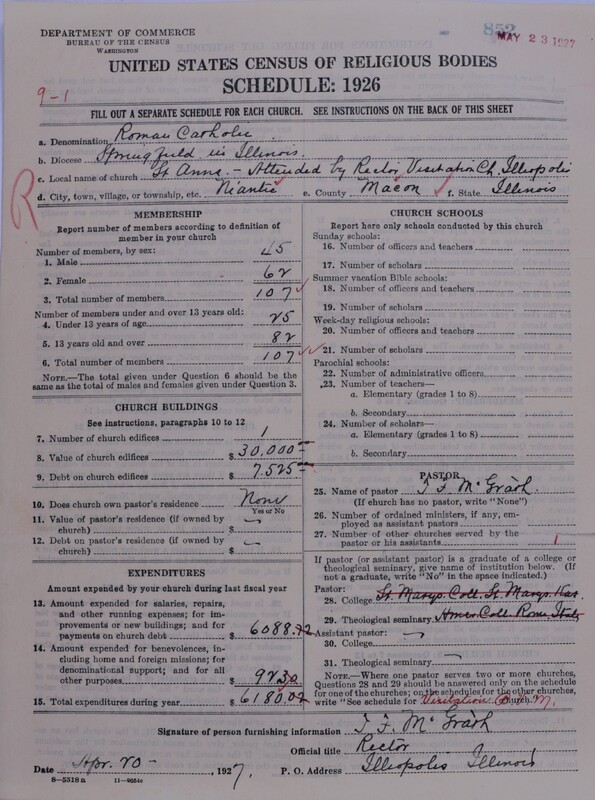 DEPARTMENT OF COMMERCE
BUREAU OF THE CENSUS
WASHINGTON
MAY 23 1927
UNITED STATES CENSUS OF RELIGIOUS BODIES
SCHEDULE: 1926
9-1
FILL OUT A SEPARATE SCHEDULE FOR EACH CHURCH. SEE INSTRUCTIONS ON THE BACK OF THIS SHEET
a. Denomination Roman Catholic
b. Diocese Springfield in Illinois.
c. Local name of church St Anns. - Attended by Rector Visitation Ch. Illiopolis
d. City, town, village, or township, etc. Niantic e. County Macon f. State Illinois
R
MEMBERSHIP
Report number of members according to definition of member in your church
Number of members, by sex:
1. Male 45
2. Female 62
3. Total number of members 107
Number of members under and over 13 years old:
4. Under 13 years of age 25
5. 13 years old and over 82
6. Total number of members 107
NOTE.—The total given under Question 6 should be
same as the total of males and females given under Question 3.
CHURCH BUILDINGS
See instructions, paragraphs 10 to 12
7. Number of church edifices 1
8. Value of church edifices $ 30,000
9. Debt on church edifices $ 7,525
10. Does church own pastor's residence? None
Yes or No
11. Value of pastor's residence (if owned by
church) $ —
12. Debt on pastor's residence (if owned by
church) $ —
EXPENDITURES
Amount expended by your church during last fiscal year
13. Amount expended for salaries, repairs,
and other running expenses; for im-
provements or new buildings; and for
payments on church debt $ 6088.72
14. Amount expended for benevolences,
including home and foreign missions; for
denominational support; and for all
other purposes $ 92.30
15. Total expenditures during year $ 6180.02
CHURCH SCHOOLS
Report here only schools conducted by this church
Sunday schools:
16. Number of officers and teachers
17. Number of scholars
Summer vacation Bible schools:
18. Number of officers and teachers
19. Number of scholars
Week-day religious schools:
20. Number of officers and teachers
21. Number of scholars
Parochial schools:
22. Number of administrative officers
23. Number of teachers—
a. Elementary (grades 1 to 8)
b. Secondary
24. Number of scholars—
a. Elementary (grades 1 to 8)
b. Secondary
PASTOR
25. Name of pastor T F McGrath.
(If church has no pastor, write "None")
26. Number of ordained ministers, if any, em-
ployed as assistant pastors
27. Number of other churches served by the
pastor or his assistants 1
If pastor (or assistant pastor) is a graduate of a college or
theological seminary, give name of institution below. (If
not a graduate, write "No" in the space indicated.)
Pastor:
28. College St. Marys. Coll. St. Marys. Kas.
29. Theological seminary Amer. Coll. Rome, Italy
Assistant pastor: —
30. College
31. Theological seminary —
NOTE.—Where one pastor serves two or more churches,
Questions 28 and 29 should be answered only on the schedule
for one of the churches; on the schedules for the other churches,
write "See schedule for Visitation Church."
Signature of person furnishing information T. F. McGrath
Official title Rector
Date Apr. 20 -, 1927. P. O. Address Illiopolis Illinois
8-5318a 11-9664c